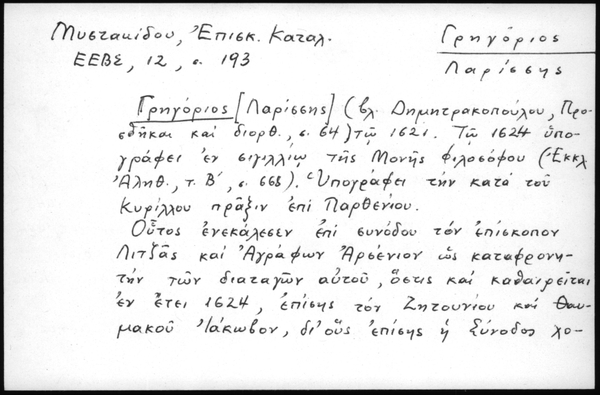 Μυστακίδου, Ἐπισκ. Καταλ.
ΕΕΒΣ, 12, σ. 193
Γρηγόριος
Λαρίσσης
Γρηγόριος [Λαρίσσης] (βλ. Δημητρακοπούλου, Προ-
σθῆκαι καὶ διορθ., σ. 64) τῷ 1621. Τῷ 1624 ὑπο-
γράφει ἐν σιγιλλίῳ τῆς Μονῆς φιλοσόφου (Ἐκκλ
Ἀληθ., τ. Β΄, σ. 665). Ὑπογράφει τὴν κατὰ τοῦ
Κυρίλλου πρᾶξιν ἐπὶ Παρθενίου.
Οὗτος ἐνεκάλεσεν ἐπὶ συνόδου τὸν ἐπίσκοπον
Λιτζᾶς καὶ Ἀγράφων Ἀρσένιον ὡς καταφρονη-
τὴν τῶν διαταγῶν αὐτοῦ, ὅστις καὶ καθαιρεῖται
ἐν ἔτει 1624, ἐπίσης τὸν Ζητουνίου καὶ Θαυ-
μακοῦ Ἰάκωβον, δι' οὓς ἐπίσης ἡ Σύνοδος χο-